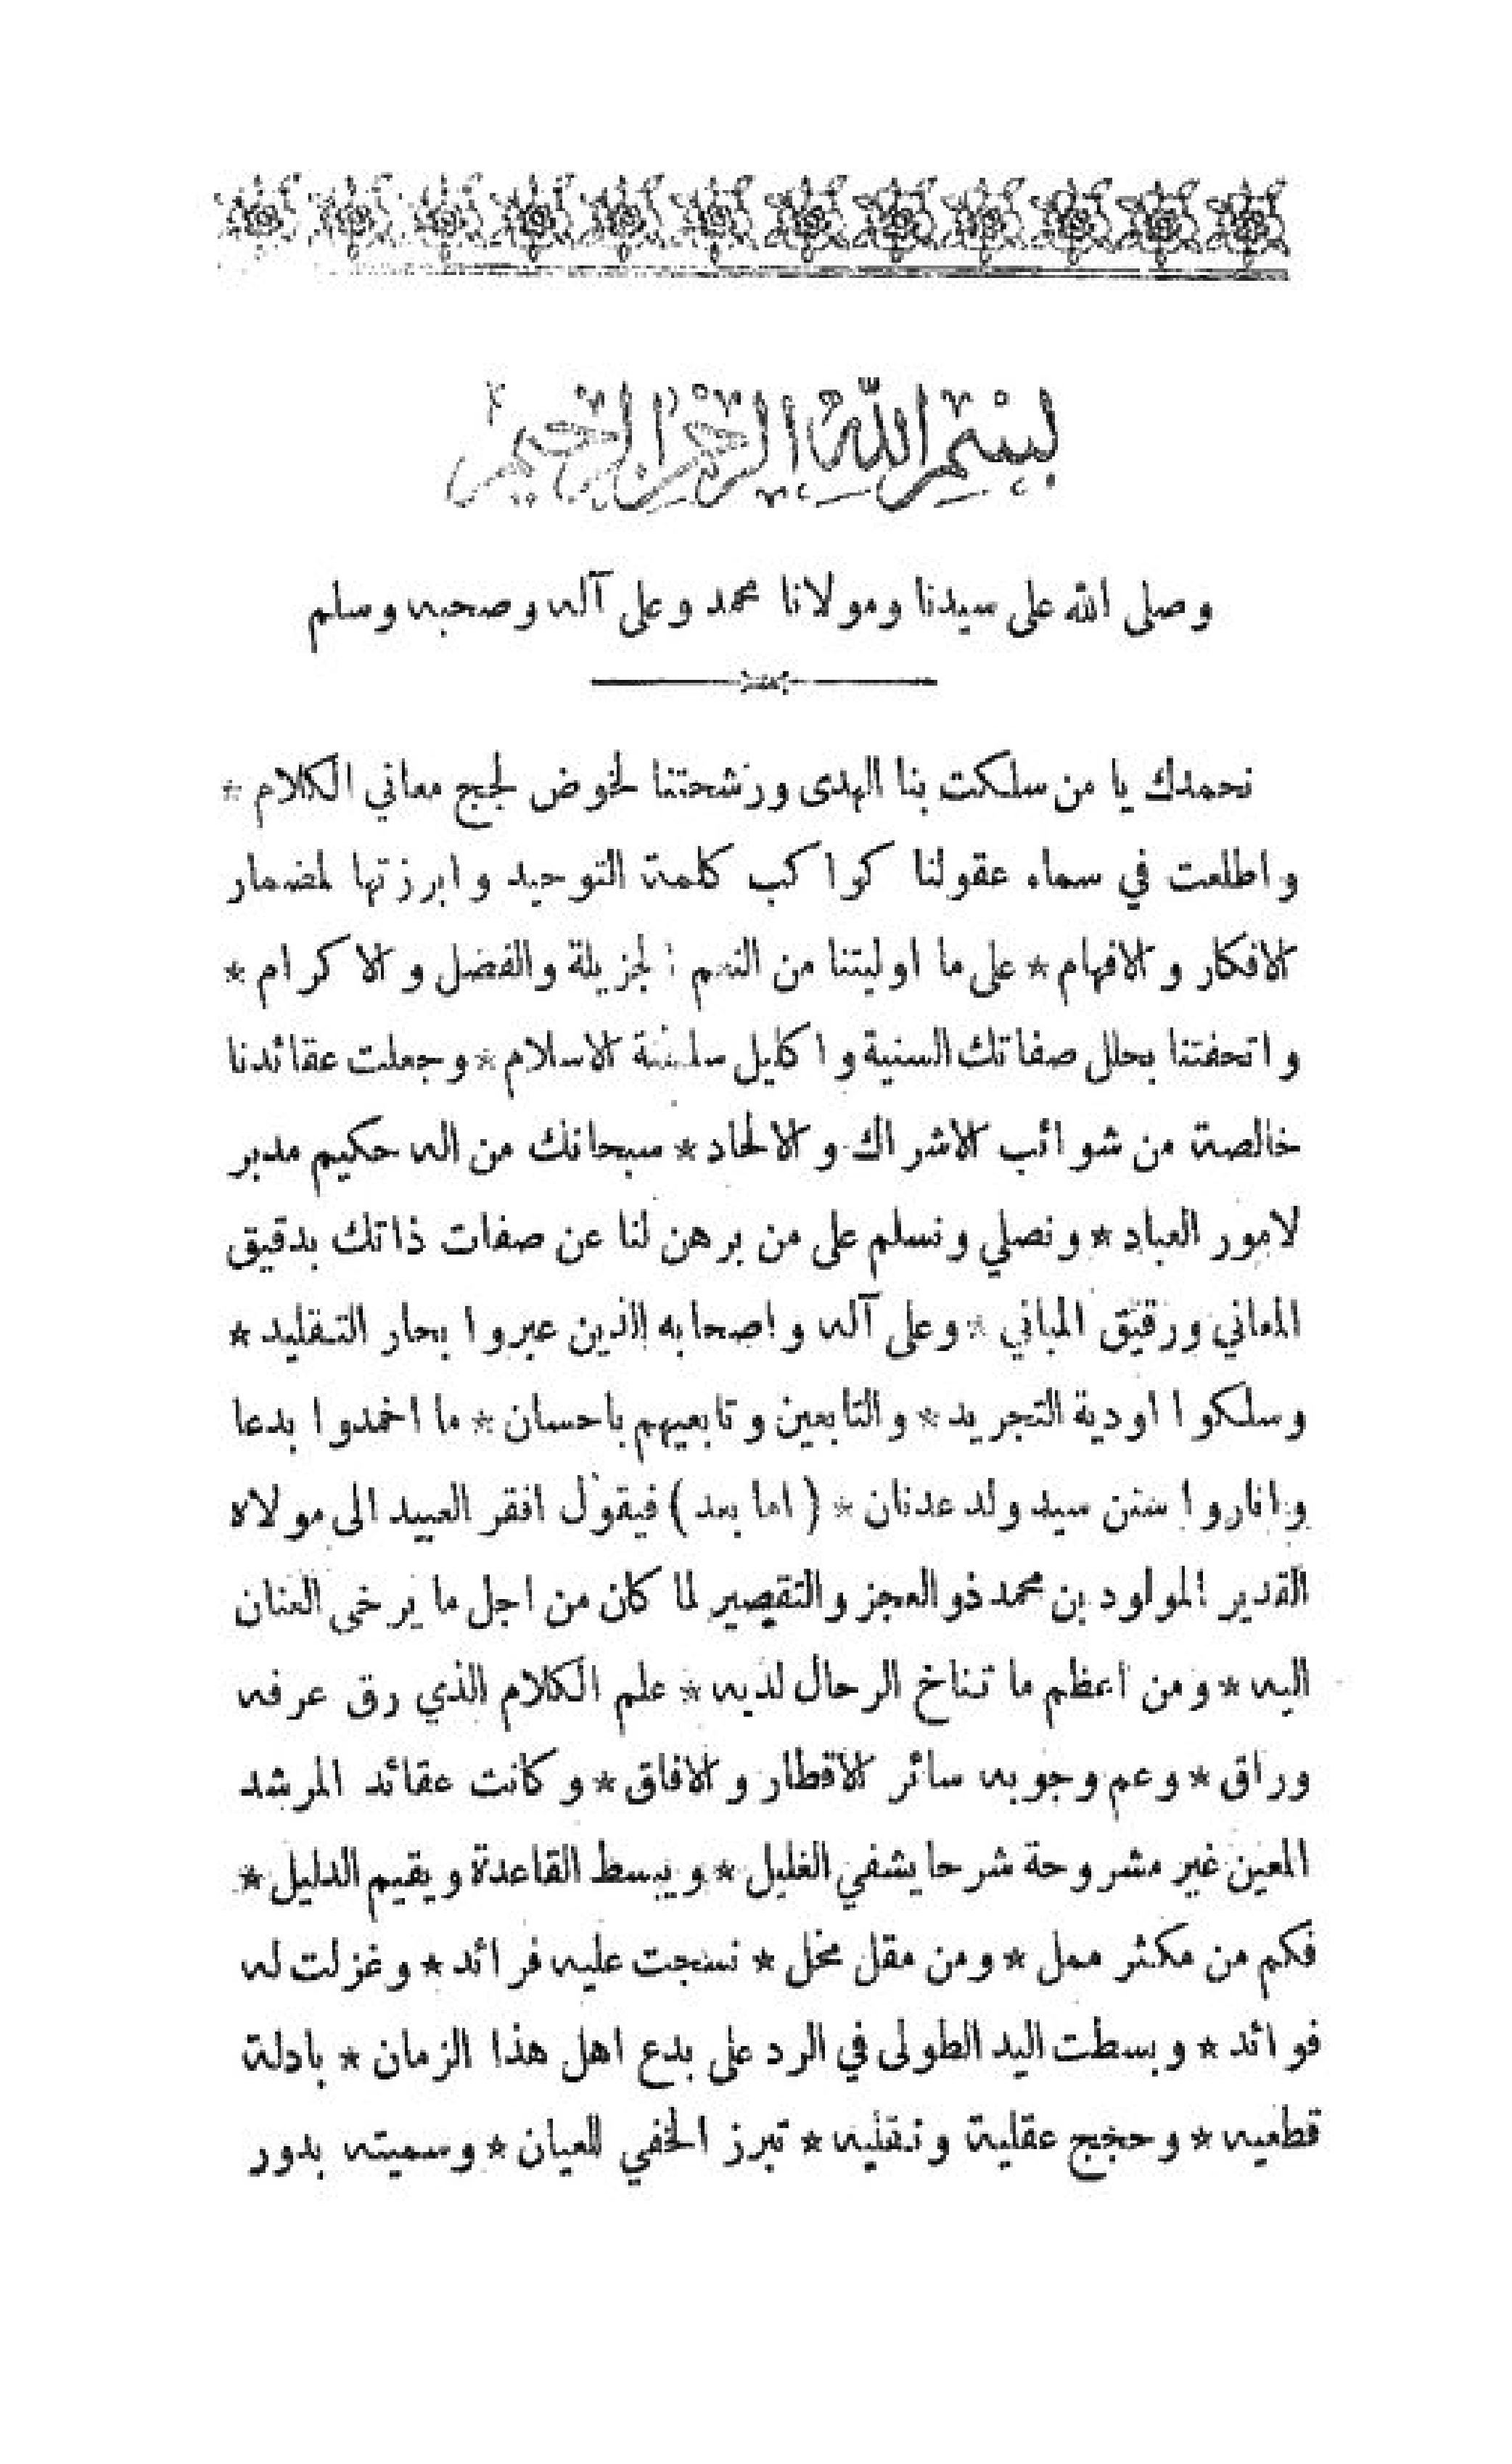 بسم الله الرحمن الرحيم
وصلى الله على سيدنا ومولانا محمد وعلى آله وصحبه وسلم
نحمدك يا من سلكت بنا الهدى ورشحتنا لخوض لجج معاني الكلام *
واطلعت في سماء عقولنا كواكب كلمة التوحيد وابرزتها لمضمار
الافكار والافهام * على ما اوليتنا من النعم الجزيلة والفضل والاكرام *
واتحفتنا بحلل صفاتك السنية واكليل سلطنة الاسلام * وجعلت عقائدنا
خالصة من شوائب الاشراك والالحاد * سبحانك من اله حكيم مدبر
لامور العباد * ونصلي ونسلم على من برهن لنا عن صفات ذاتك بدقيق
المعاني ورقيق المباني * وعلى آله واصحابه الذين عبروا بحار التقليد *
وسلكوا اودية التجريد * والتابعين وتابعيهم باحسان * ما اخمدوا بدعا
واناروا سنن سيد ولد عدنان * (اما بعد) فيقول افقر العبيد الى مولاه
القدير المولود بن محمد ذو العجز والتقصير لما كان من اجل ما يرخى العنان
اليه * ومن اعظم ما تناخ الرحال لديه * علم الكلام الذي رق عرفه
وراق * وعم وجوبه سائر الاقطار والافاق * وكانت عقائد المرشد
المعين غير مشروحة شرحا يشفي الغليل * ويبسط القاعدة ويقيم الدليل *
فكم من مكثر ممل * ومن مقل مخل * نسجت عليه فرائد * وغزلت له
فوائد * وبسطت اليد الطولى في الرد على بدع اهل هذا الزمان * بادلة
قطعيه * وحججج عقلية ونقليه * تبرز الخفي للعيان * وسميته بدور